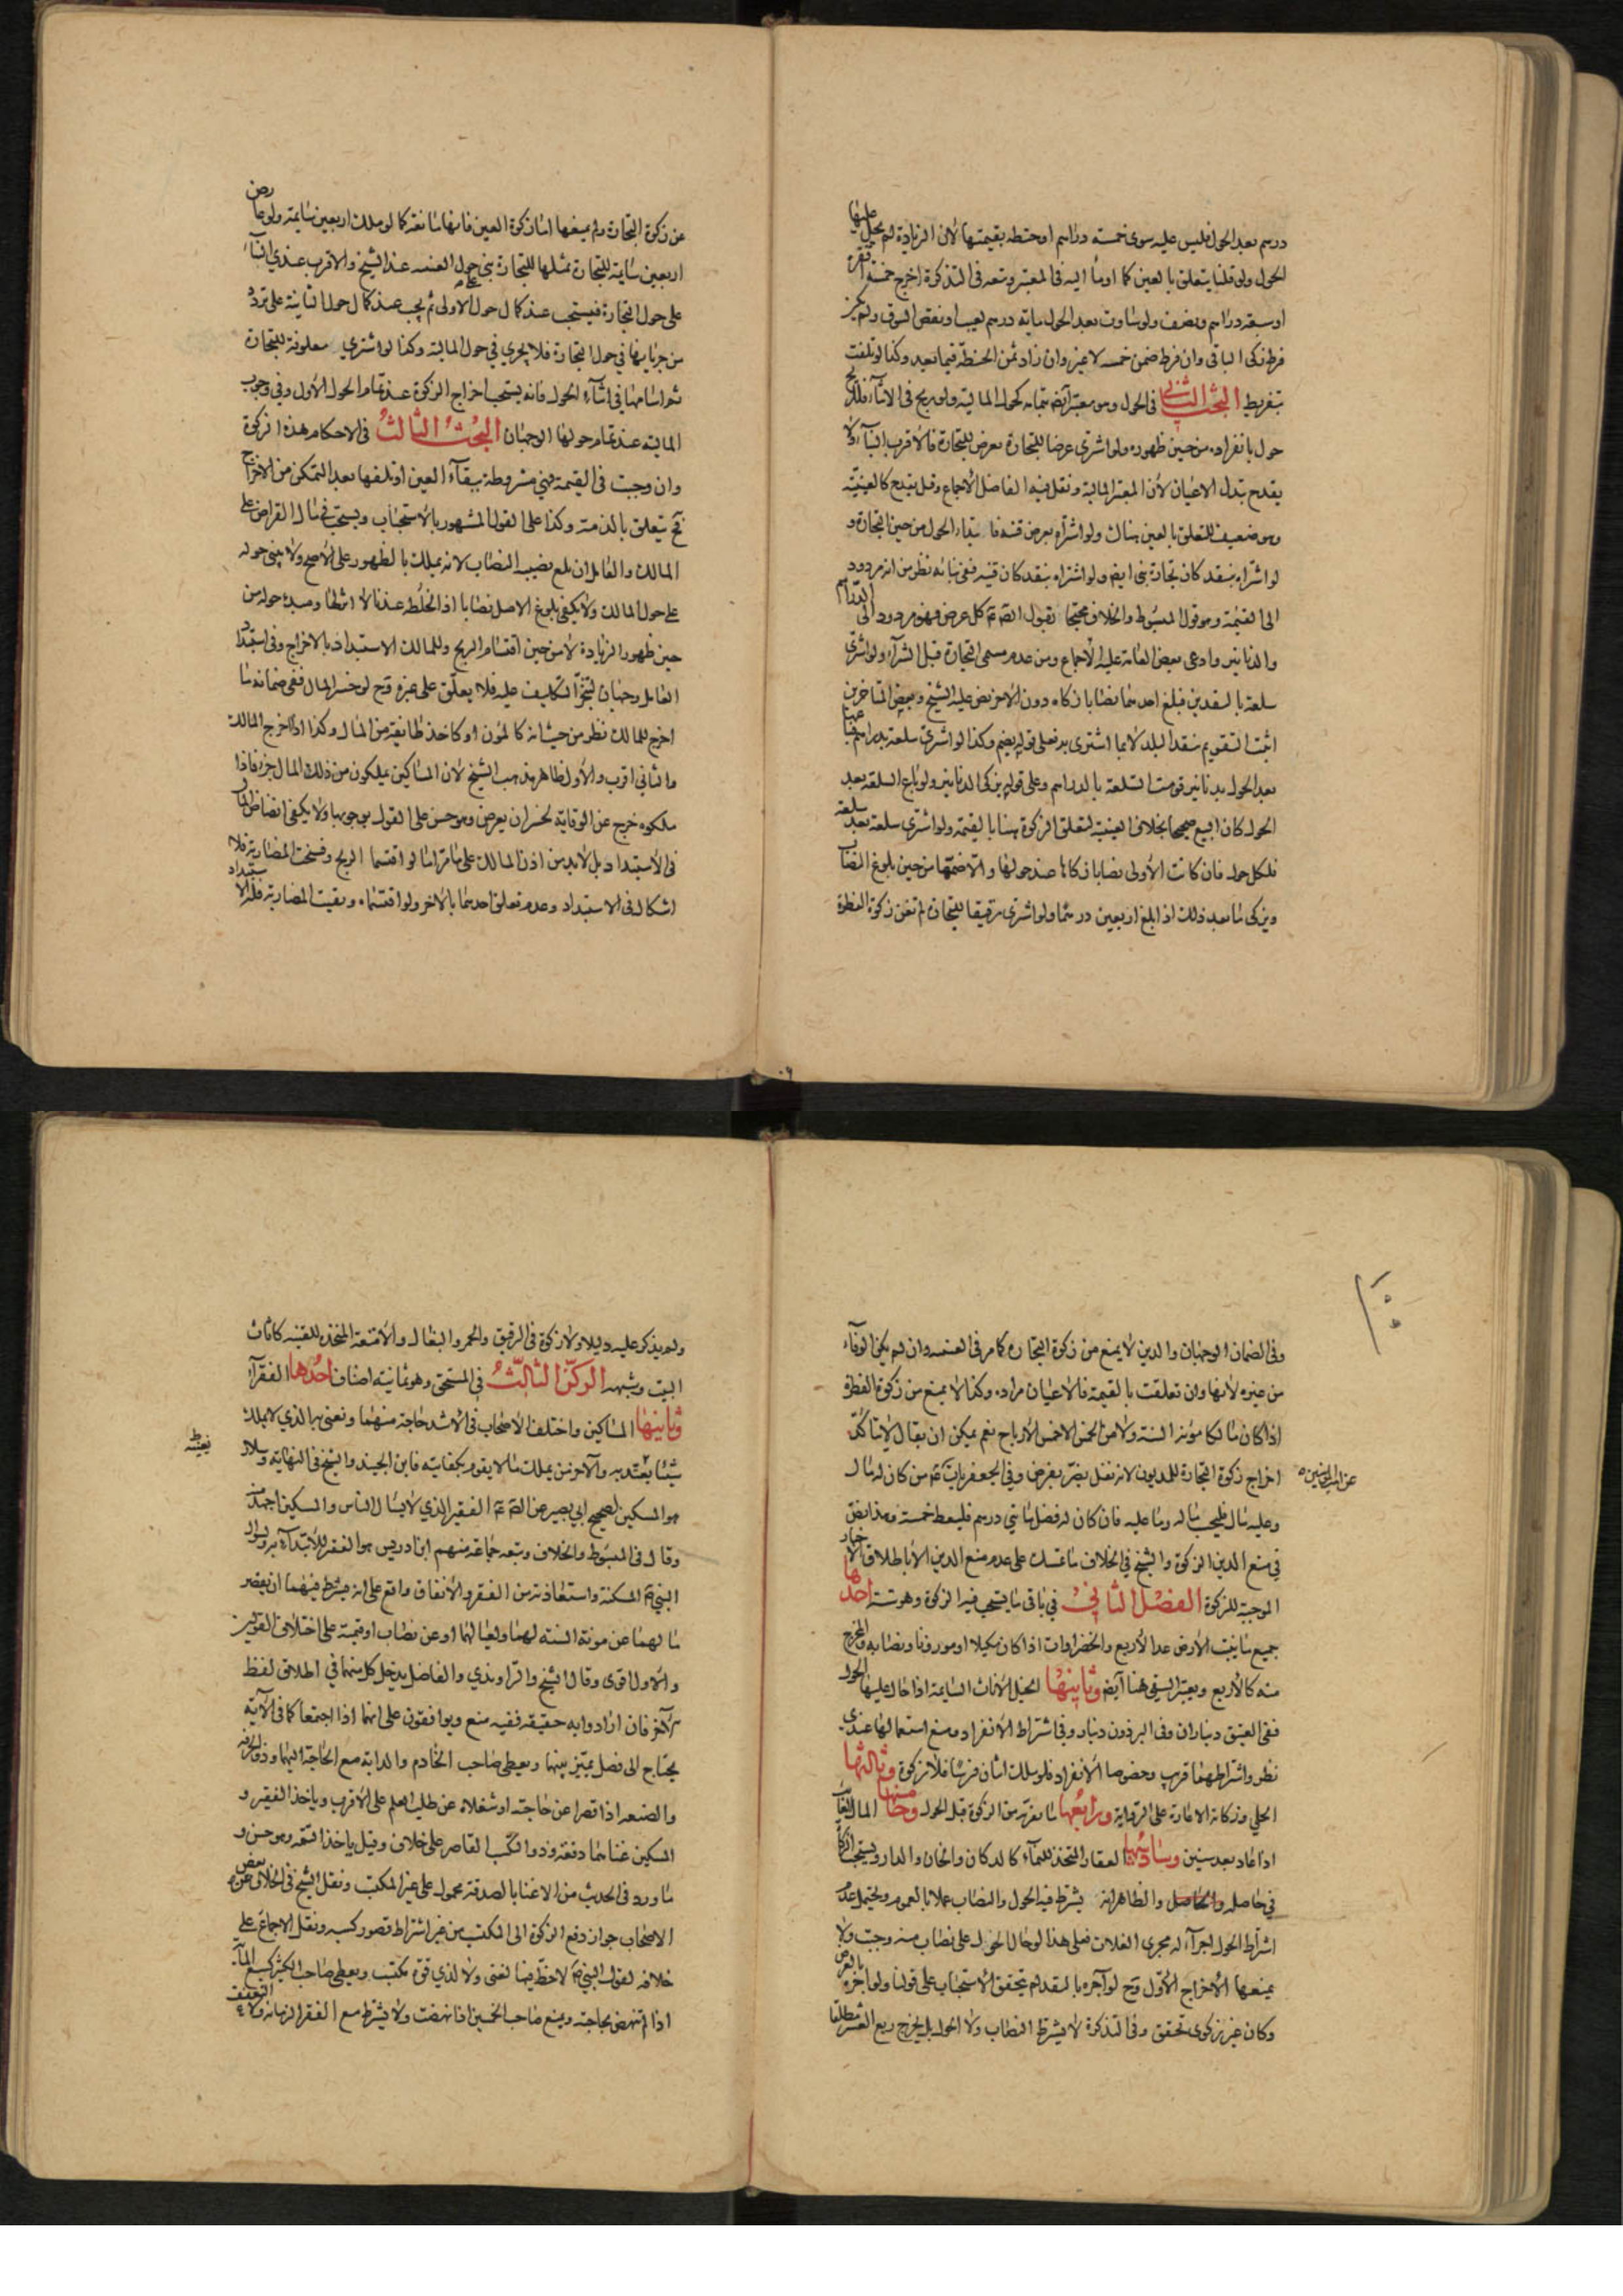 درهم بعد الحول فليس عليه سوى خمسة دراهم او حنطة بقيمتها لان الزيادة لم يحل عليها
الحول ولو قلنا يتعلق بالعين كما اومأ اليه فى المعتبر وتبعه فى التذكرة اخرج خمسة اقفزة
او سبعة دراهم ونصف ولو ساوت بعد الحول مايه درهم لعيب او نقص السوق ولم يكن
فرط زكى الباقى وان فرط ضمن خمسه لا غير وان زاد ثمن الحنطة فيما بعد وكذا لو تلفت
بتفريط البحث الثانى فى الحول وهو معتبر ايضا بتمامه كحول المالية ولو ربح فى الاثناء فللربح
حول بانفراده من حين ظهوره ولو اشترى عرضا للتجارة بعرض للتجارة فالاقرب البناء ولا
يقدح تبدل الاعيان لأن المعتبر المالية ونقل فيه الفاضل الاجماع وقيل يقدح كالعينية
وهو ضعيف للتعلق بالعين هناك ولو اشتراه بعرض قنيه فابتداء الحول من حين التجارة و
لو اشتراه بنقد كان تجارة بنى ايضا ولو اشتراه بنقد كان قنيه ففى بنائه نظر من انه مردود
الى القيمة وهو قول المبسوط والخلاف محتجا بقول الصم كل عرض فهو مردود الى الدراهم
والدنانير وادعى بعض العامة عليه الاجماع ومن عدم مسمى التجارة قبل الشراء ولو اشترى
سلعة بالنقدين فبلغ احدهما نصابا زكاه دون الاخر نص عليه الشيخ وبعض المتاخرين
اثبت التقويم بنقد البلد لا بما اشترى به فعلى قوله يضم وكذا لو اشترى سلعة بدراهم فباعها
بعد الحول بدنانير قومت السلعة بالدراهم وعلى قوله يزكى الدنانير ولو باع السلعة بعد
الحول كان البيع صحيحا بخلاف العينية لتعلق الزكوة هنا بالقيمة ولو اشترى سلعة بعد سلعة
فلكل حول فان كانت الأولى نصابا زكاها عند حولها والا ضمتها من حين بلوغ النصاب
ويزكى ما بعد ذلك اذا بلغ اربعين درهما ولو اشترى رقيقا للتجارة لم تغن زكوة الفطرة
عن زكوة التجارة ولم يمنعها اما زكوة العين فانها مانعة كما لو ملك اربعين سايمة ولو عارض
اربعين سايمة للتجارة بمثلها للتجارة بنى على حول العينيه عند الشيخ والاقرب عندي البناء
على حول التجارة فيستحب عند كمال حول الاولى ثم يجب عند كمال حول الثانية على تردد
من جريانها فى حول التجارة فلا يجرى فى حول المالية وكذا لو اشترى معلوفة للتجارة
ثم اسامها فى اثناء الحول فانه يستحب اخراج الزكوة عند تمام الحول الأول وفى وجوب
المالية عند تمام حولها الوجهان البحث الثالث فى الاحكام هذه الزكوة
وان وجبت فى القيمة فهى مشروطة ببقاء العين او تلفها بعد التمكن من الاخراج
فح يتعلق بالذمة وكذا على القول المشهور بالاستحباب ويستحب فى مال القراض على
المالك والعامل ان بلغ نصيب النصاب لانه يملك بالظهور على الاصح ولا يبنى حوله
على حول المالك ولا يكفى بلوغ الاصل نصابا اذ الخلطه عندنا لا اثر لها ومبدء حوله من
حين ظهور الزيادة لا من حين اقتسام الربح وللمالك الاستبداد بالاخراج وفى استبداد
العامل وجهان لتنجز التكليف عليه فلا يعلق على غيره وح لو خسر المال ففى ضمانه ما
اخرج للمالك نظر من حيث انه كالمؤن او كاخذ طايفة من المال وكذا اذا اخرج المالك
والثانى اقرب والأول ظاهر مذهب الشيخ لان المساكين يملكون من ذلك المال جزء فاذا
ملكوه خرج عن الوقاية لخسران يعرض وهو حسن على القول بوجوبها ولا يكفى انضاض المال
فى الاستبداد بل لا بد من اذن المالك على ما مر اما لو اقتسما الربح وفسخت المضاربة فلا
اشكال فى الاستبداد وعدم تعلق احدهما بالاخر ولو اقتسماه وبقيت المضاربة فله الاستبداد
وفى الضمان الوجهان والدين لا يمنع من زكوة التجارة كما مر فى العينيه وان لم يكن الوفاء
من غيره لانها وان تعلقت بالقيمة فالاعيان مراده وكذا لا يمنع من زكوة الفطرة
اذا كان مالكا مؤنة السنة ولا من الخمس الا خمس الارباح نعم يمكن ان يقال لا يتأكد
اخراج زكوة التجارة للمديون لانه نفل يضر بفرض وفى الجعفريات عن امير المؤمنين ع من كان له مال
وعليه مال فليحسب ماله وما عليه فان كان له فضل مائتى درهم فليعط خمسة وهذا نص
فى منع الدين الزكوة والشيخ فى الخلاف ما تمسك على عدم منع الدين الا باطلاق الاخبار
الموجبة للزكوة الفصل الثانى فى باقى ما يستحب فيه الزكوة وهو ستة احدها
جميع ما ينبت الأرض عدا الأربع والخضراوات اذا كان مكيلا او موزونا ونصابه والمخرج
منه كالأربع ويعتبر السقى هنا ايضا وثانيها الخيل الأناث السايمة اذا حال عليها الحول
ففى العتيق ديناران وفى البرذون دينار وفى اشتراط الأنفراد ومنع استعمالها عندى
نظر واشتراطهما قريب وخصوصا الأنفراد فلو ملك اثنان فرسا فلا زكوة وثالثها
الحلي وزكاته الاعارة على الرواية ورابعها ما يفر به من الزكوة قبل الحول وخامسها المال الغايب
اذا عاد بعد سنين وسادسها العقار المتخذ للنماء كالدكان والخان والدار ويستحب الزكاة
فى حاصله والحاصل والظاهر انه يشترط فيه الحول والنصاب عملا بالعموم ويحتمل عدم
اشتراط الحول اجراء له مجرى الغلات فعلى هذا لو حال الحول على نصاب منه وجبت ولا
يمنعها الأخراج الأول وح لو آجره بالنقد لم تحقق الأستحباب على قولنا ولو اجره بالعرض
وكان غير زكوى تحقق وفى التذكرة لا يشترط النصاب ولا الحول بل يخرج ربع العشر مطلقا
ولم يذكر عليه دليلا ولا زكوة فى الرقيق والحمر والبغال والأمتعة المتخذه للقنيه كاثاث
البيت وشبهه الركن الثالث فى المستحق وهو ثمانية اصناف احدها الفقراء
وثانيها المساكين واختلف الأصحاب فى الأشد حاجة منهما ونعنى به الذي لا يملك
شيئا يعتد به والآخر من يملك ما لا يقوم بكفايته فابن الجنيد والشيخ فى النهاية وسلار
هو المسكين لصحيح ابى بصير عن الصم ع الفقير الذي لا يسال الناس والمسكين اجهد منه
وقال فى المبسوط والخلاف وتبعه جماعة منهم ابن ادريس هو الفقير للأبتداء به ولسؤال
النبى ص المسكنة واستعاذته من الفقر والأتفاق واقع على انه يشترط فيهما ان يقصر
ما لهما عن مونة السنة لهما ولعيالهما او عن نصاب او قيمته على اختلاف القولين
والاول اقوى وقال الشيخ والراوندي والفاضل يدخل كل منهما فى اطلاق لفظ
الآخر فان ارادوا به حقيقة ففيه منع ويوافقون على انهما اذا اجتمعا كما فى الآية
يحتاج الى فصل يميز بينهما ويعطى صاحب الخادم والدابة مع الحاجة اليهما وذو الحرفة
والصنعه اذا قصرا عن حاجته او شغلاه عن طلب العلم على الأقرب وياخذ الفقير و
المسكين غناهما دفعة وذو التكسب القاصر على خلاف وقيل ياخذ التتمه وهو حسن و
ما ورد فى الحديث من الاغناء بالصدقة محمول على غير المكتسب ونقل الشيخ فى الخلاف عن بعض
الاصحاب جواز دفع الزكوة الى المكتسب من غير اشتراط قصور كسبه ونقل الاجماع على
خلافه لقول النبى ص لا حظ فيها لغنى ولا لذي قوة مكتسب ويعطى صاحب الكثير كسبع المائة
اذا لم تنهض بحاجته ويمنع صاحب الخمسين اذا نهضت ولا يشترط مع الفقر الزمانة ولا التعفف